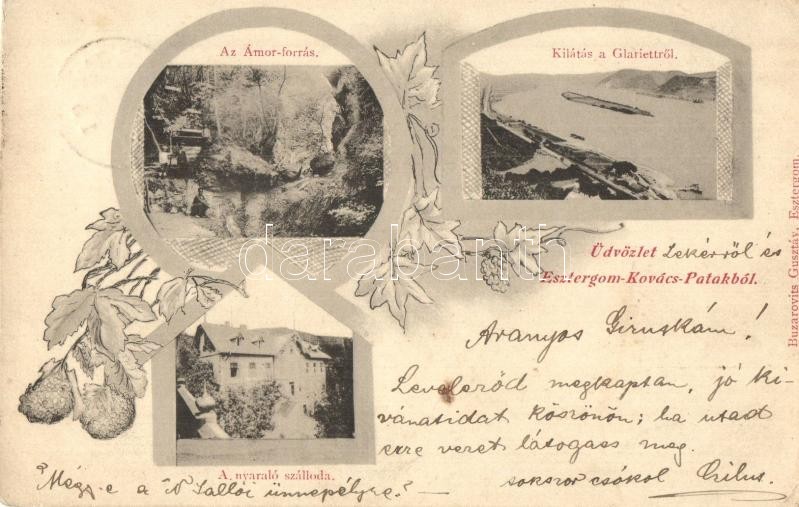 Az Ámor-forrás.
Kilátás a Glariettről.
Üdvözlet Lekérről és
Esztergom-Kovács-Patakból.
Aranyos Giruskám!
Leveleződ megkaptam, jó ki-
vánatidat köszönöm; ha utad
erre veret látogass meg.
sokszor csókol
A nyaraló szálloda.
Mégy-e a N Sallói ünnepélyre? —
Buzarovits Gusztáv, Esztergom.
darabanth